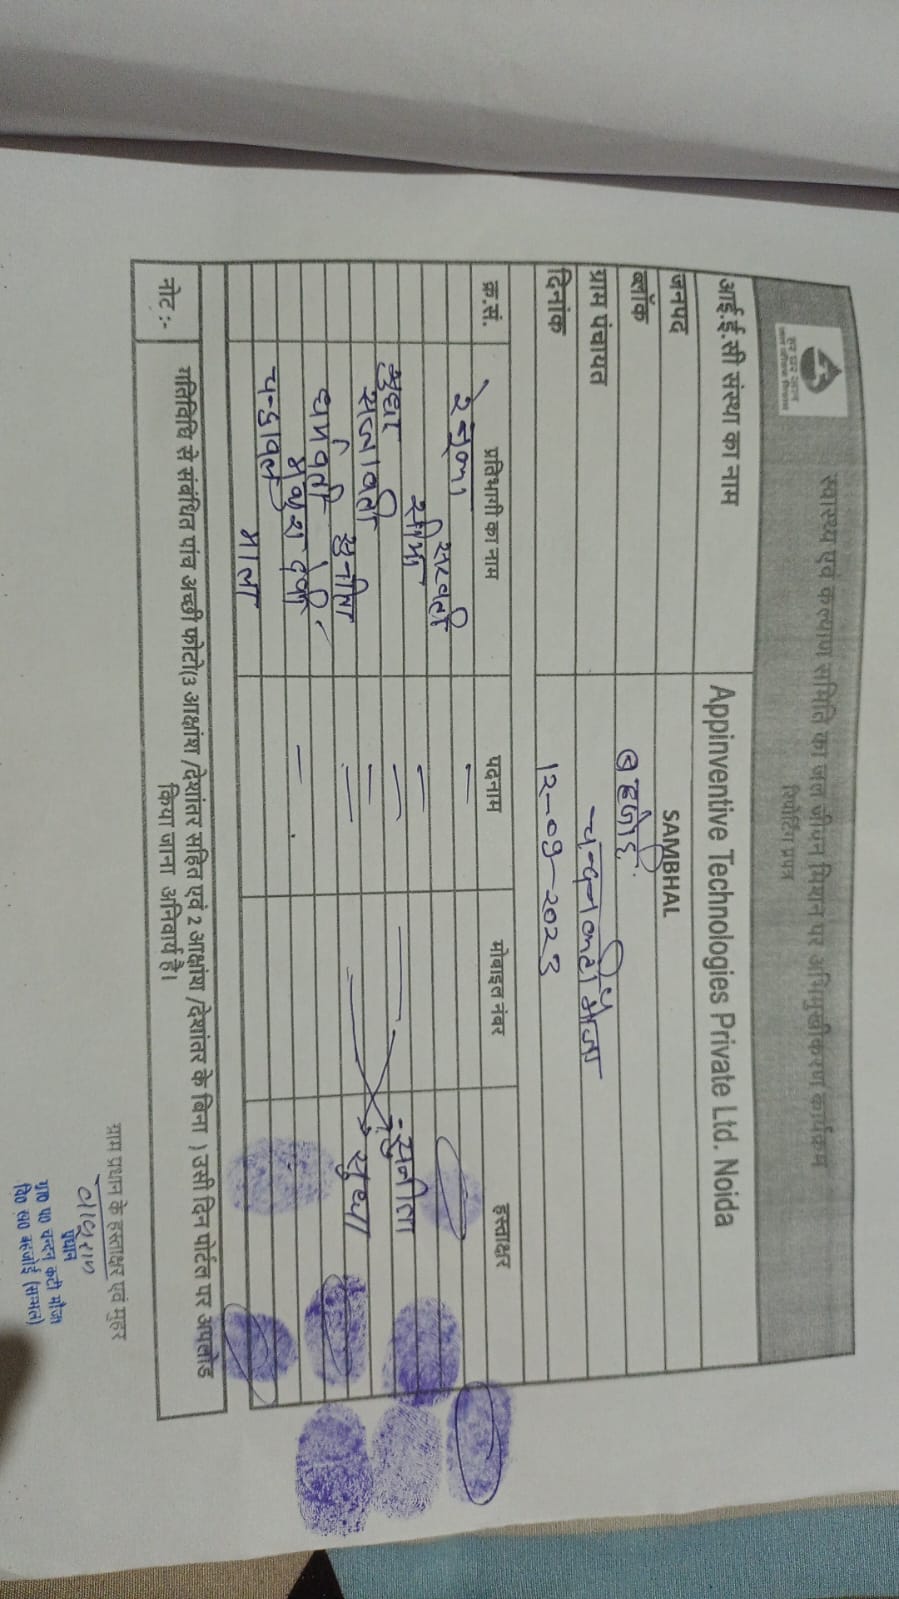 हर घर जल
जल जीवन मिशन
स्वास्थ्य एवं कल्याण समिति का जल जीवन मिशन पर अभिमुखीकरण कार्यक्रम
रिपोर्टिंग प्रपत्र
आई.ई.सी संस्था का नाम Appinventive Technologies Private Ltd. Noida
जनपद SAMBHAL
ब्लॉक बहजोई
ग्राम पंचायत चन्दनकटी मौजा
दिनांक 12-09-2023
क्र.सं. प्रतिभागी का नाम पदनाम मोबाइल नंबर हस्ताक्षर
सरवती
सीमा
सुधा - सुनीता
राजावती
सुनीता सुधा
धर्मवती
चन्द्रावती
माला
नोट :- गतिविधि से संबंधित पांच अच्छी फोटो(3 आक्षांश /देशांतर सहित एवं 2 आक्षांश /देशांतर के बिना ) उसी दिन पोर्टल पर अपलोड
किया जाना अनिवार्य है।
ग्राम प्रधान के हस्ताक्षर एवं मुहर
प्रधान
ग्रा० पं० चन्दन कटी मौजा
वि० ख० बहजोई (सम्भल)